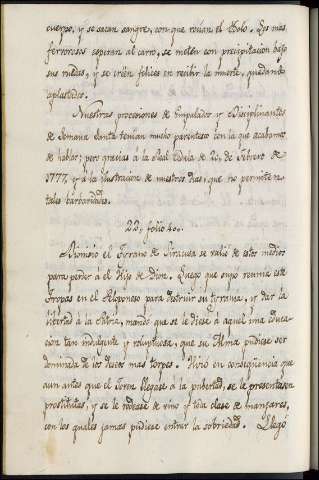 cuerpo, y se sacan sangre, con que rocian el Idolo. Los mas
fervorosos esperan al carro, se meten con precipitacion bajo
sus ruedas, y se creen felices en recibir la muerte, quedando
aplastados.
Nuestras procesiones de Empalados y Disciplinantes
de Semana Santa tenian mucho parentesco con la que acabamos
de hablar; pero gracias á la Real Cedula de 20, de Febrero de
1777, y á la ilustracion de nuestros dias, que no permiten
tales barbaridades.
22, folio 40.
Dionisio el Tirano de Siracusa se valió de estos medios
para perder á el Hijo de Dion. Luego que supo reunia este
Tropas en el Peloponeso para destruir su tirania, y dar la
libertad á la Patria, mandó que se le diese á aquel una educa
cion tan indulgente y voluptuosa, que su Alma pudiese ser
dominada de los deseos mas torpes. Hizo en conseqüencia que
aun antes que el Joven llegase á la pubertad, se le presentasen
prostitutas, y se le rodease de vino y toda clase de manjares,
con los quales jamas pudiese entrar la sobriedad. Llegó